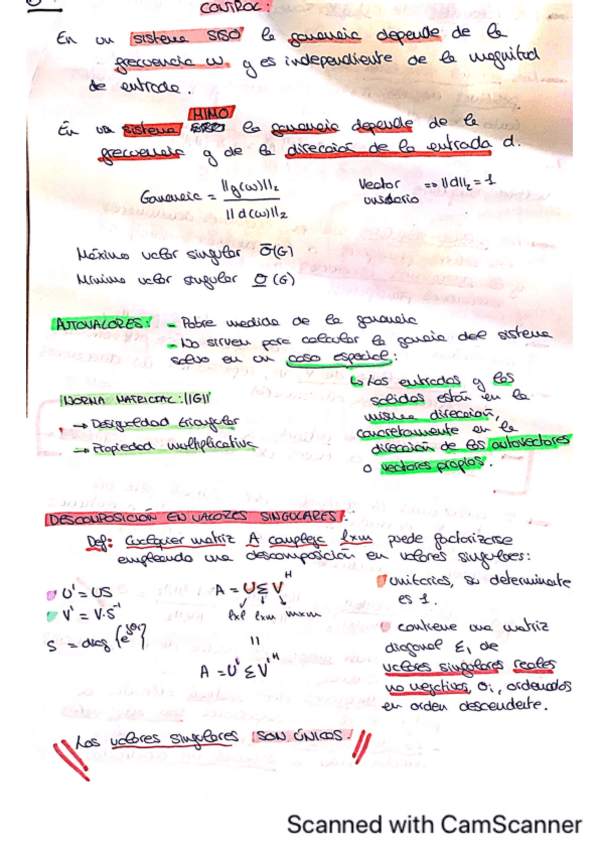 CONTROL:
En un sistema SISO la ganancia depende de la
frecuencia ω, y es independiente de la magnitud
de entrada.
MIMO
En un sistema la ganancia depende de la
frecuencia y de la dirección de la entrada d.
Ganancia = ||y(ω)||₂ / ||d(ω)||₂
Vector unitario => ||d||₂ = 1
Máximo valor singular σ̅(G)
Mínimo valor singular σ̲(G)
AUTOVALORES: - Pobre medida de la ganancia
- No sirven para calcular la ganancia del sistema
salvo en un caso especial:
↳ Las entradas y las
salidas están en la
misma dirección,
concretamente en la
dirección de los autovectores
o vectores propios.
NORMA MATRICIAL: ||G||
→ Desigualdad triangular
→ Propiedad multiplicativa
DESCOMPOSICIÓN EN VALORES SINGULARES:
Def: Cualquier matriz A compleja lxm puede factorizarse
empleando una descomposición en valores singulares:
U' = US
V' = V·S⁻¹
S = diag {e^jθi}
A = UΣV^H
lxl lxm mxm
=
A = U'ΣV'^H
unitarias, su determinante
es 1.
contiene una matriz
diagonal Σ₁ de
valores singulares reales
no negativos, σi, ordenados
en orden descendente.
Los valores singulares SON ÚNICOS.
Scanned with CamScanner